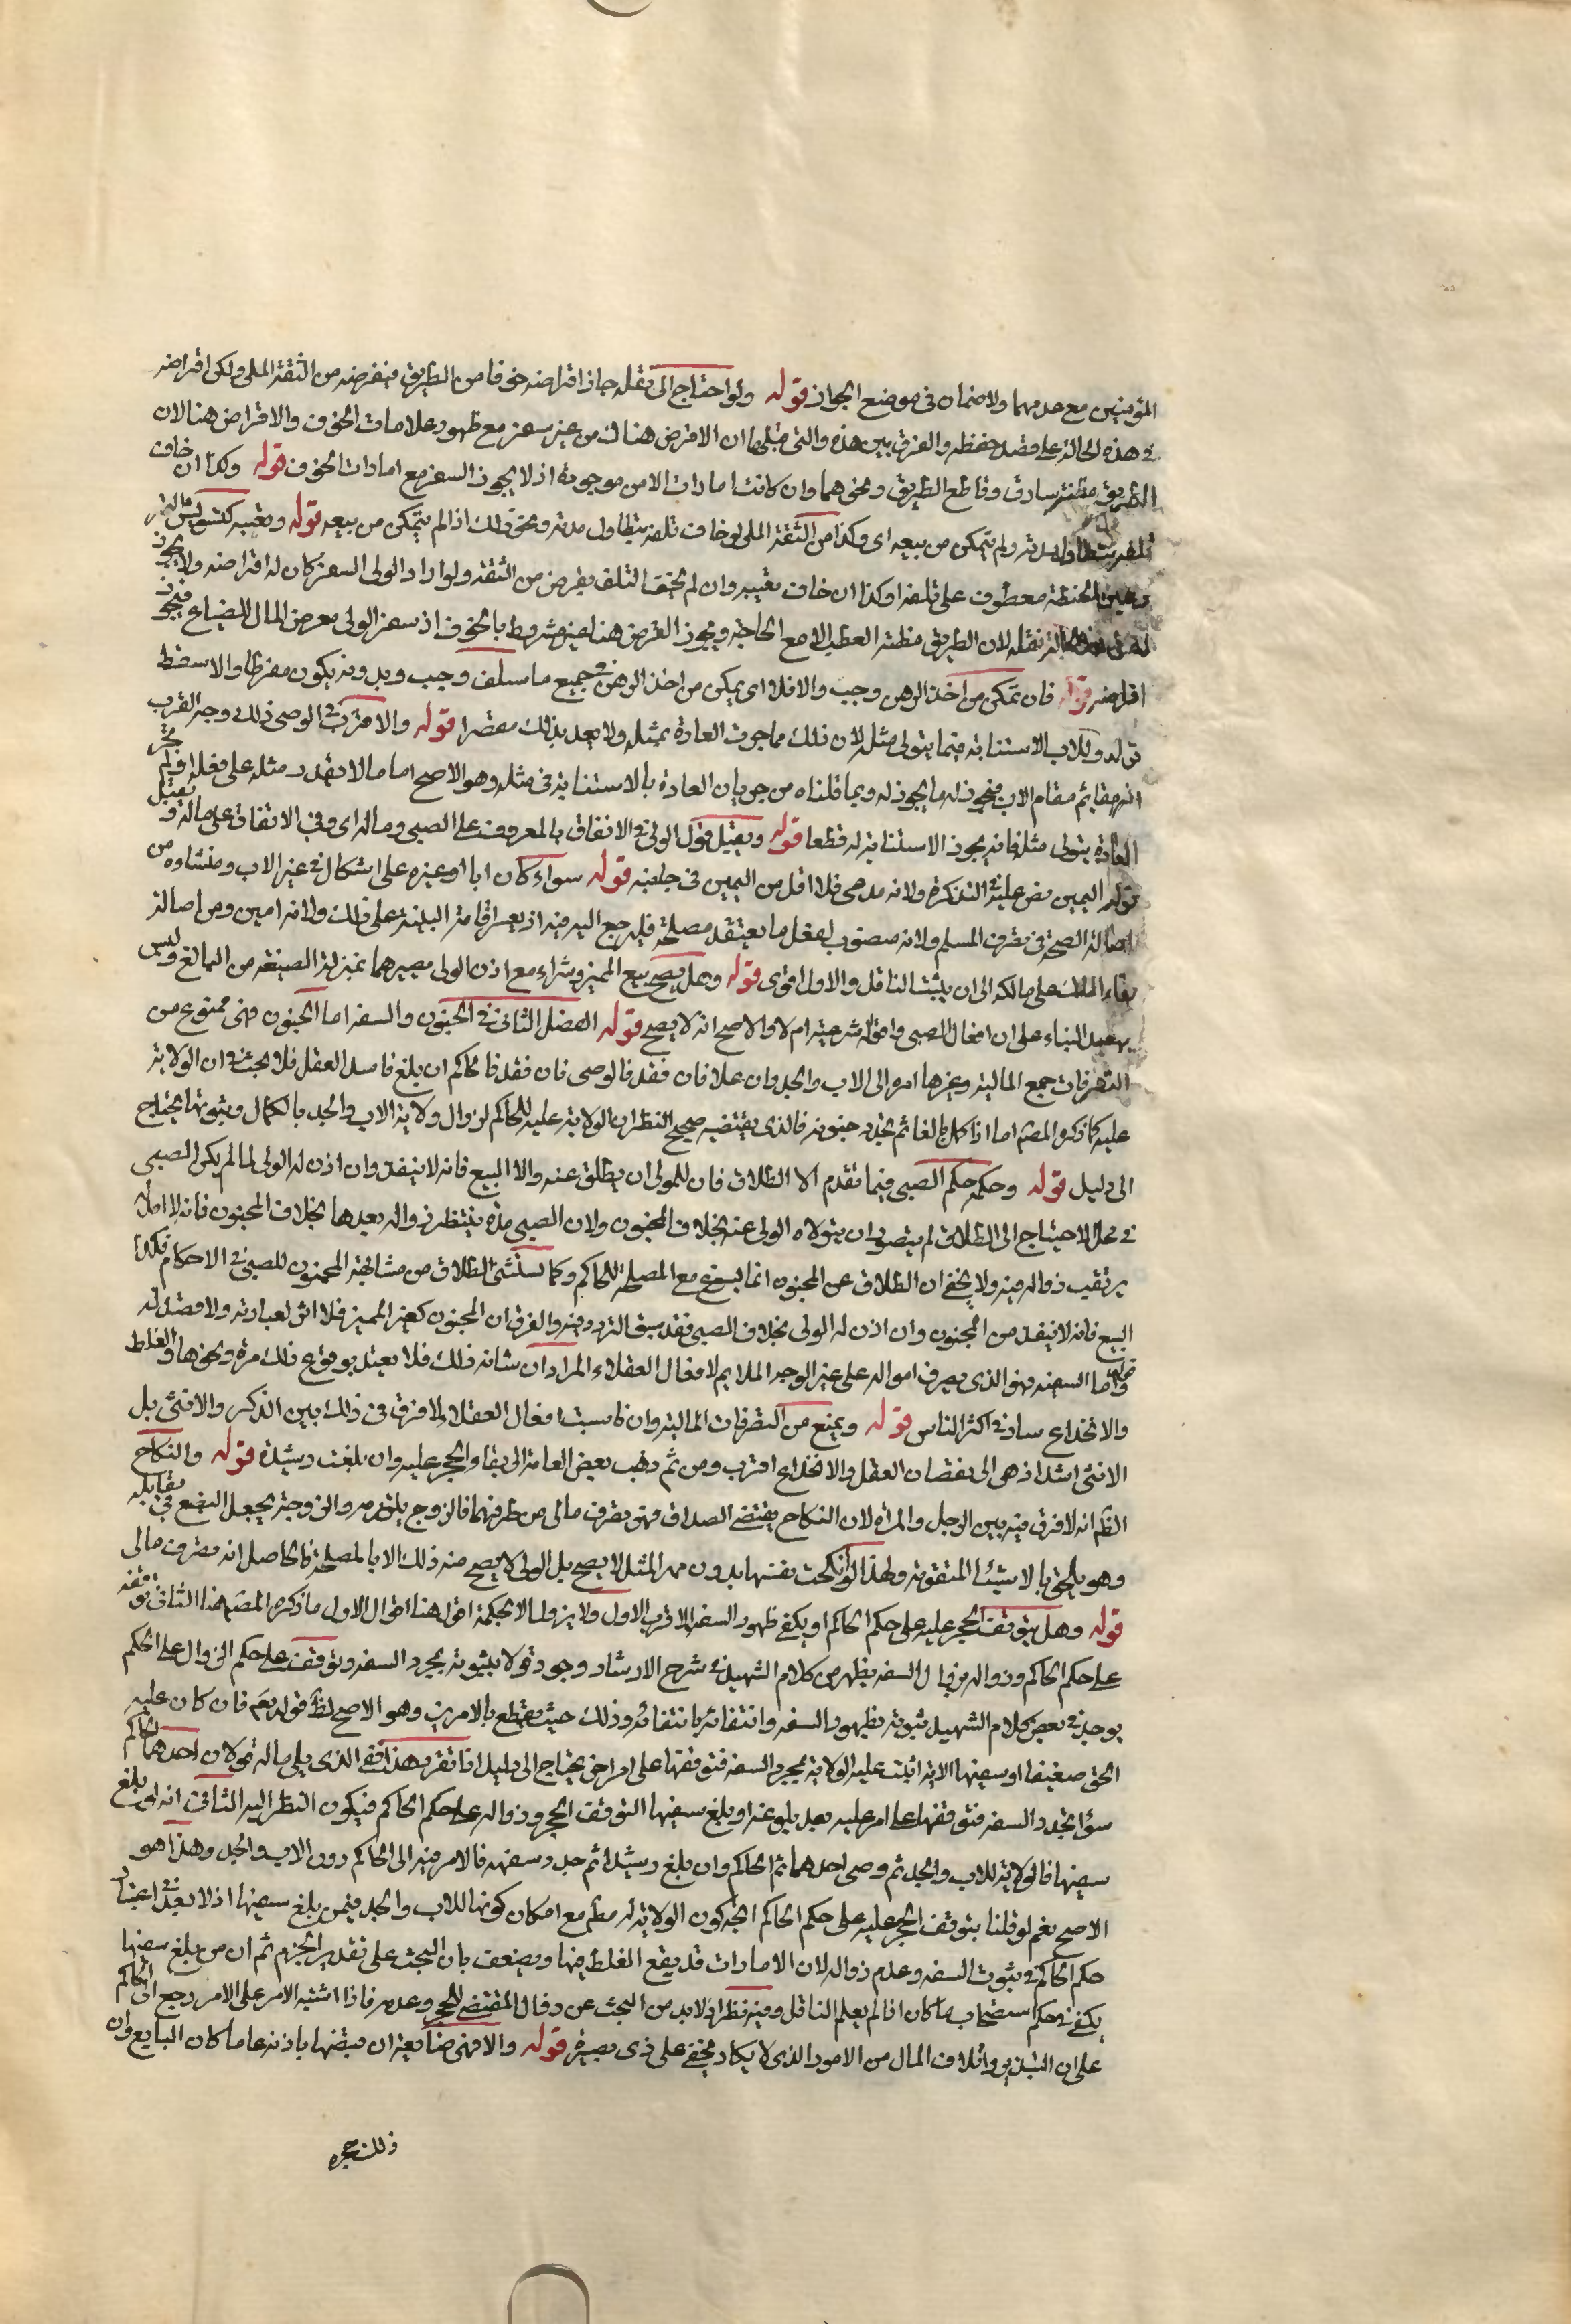 المؤمنين مع عدمهما ولا ضمان فى موضع الجواز قوله ولو احتاج الى نقله جاز اقراضه خوفا من الطريق فيقرضه من الثقة الملى ولكن اقراضه
فى هذه الحالة على قصد حفظه والفرق بين هذه والتى قبلها ان الاقرض هناك من غير سفر مع ظهور علامات الخوف والاقراض هنا لان
الطريق مظنة سارق وقاطع الطريق ونحوهما وان كانت امارات الامن موجودة اذ لا يجوز السفر مع امارات الخوف قوله وكذا ان خاف
تلفه بتطاول مدته ولم يتمكن من بيعه اى وكذا من الثقة الملى لو خاف تلفه بتطاول مدته ونحو ذلك اذا لم يتمكن من بيعه قوله وتغيبه كتسويس التمر
الحنطة معطوف على تلفه اى وكذا ان خاف تغييبه وان لم يخف التلف يقرض من الثقة ولو اراد الولى السفر كان له اقراضه ولا يجوز
له فى هذه الحالة نقله لان الطريق مظنة العطب الا مع الحاجة ويجوز القرض هنا غير مشروط بالخوف اذ سفر الولى معرض المال للضياع فيجوز
اقراضه قوله فان تمكن من اخذ الرهن وجب والا فلا اى يمكن من اخذ الرهن فى جميع ما سلف وجب وبدونه يكون مفرطا والا سقط
قوله وللاب الاستنابة فيما يتولى مثله لان ذلك مما جرت العادة بمثله ولا يعد بذلك مقصرا قوله والاقرب فى الوصى ذلك وجه القرب
انه قائم مقام الاب فيجوز له ما يجوز له وبما قلناه من جريان العادة بالاستنابة فى مثله وهو الاصح اما ما لا يقدر مثله على فعله او لم تجر
العادة بتولى مثله فانه يجوز الاستنابة له قطعا قوله ويقبل قول الولى فى الانفاق بالمعروف على الصبى وماله اى وفى الانفاق على ماله ويقبل
قوله اليمين نص عليه فى التذكرة ولانه مدعى فلا اقل من اليمين فى جلبه قوله سواء كان ابا او غيره على اشكال فى غير الاب ومنشاوه من
اصالة الصحة فى تصرف المسلم ولانه منصوب لفعل ما يعتقد مصلحة فليرجع اليه فيه اذ يعسر اقامة البينة على ذلك ولانه امين ومن اصالة
بقاء الملك على مالكه الى ان يثبت الناقل والاول اقوى قوله وهل يصح بيع المميز وشراءه مع اذن الولى مصيرهما بمنزلة الصيغة من البالغ وليس
ببعيد البناء على ان افعال الصبى واقواله شرعية ام لا والاصح انه لا يصح قوله الفصل الثانى فى الجنون والسفه اما الجنون فهى ممنوع من
التصرفات جمع المالية وغيرها امره الى الاب والجد وان علا فان فقد فالوصى فان فقد فالحاكم ان بلغ فاسد العقل فلا بحث فى ان الولاية
عليه كما ذكره المصنم اما اذا كمل بالغا ثم تجدد جنونه فالذى يقتضيه صحيح النظران الولاية عليه للحاكم لزوال ولاية الاب والجد بالكمال وثبوتها يحتاج
الى دليل قوله وحكمه حكم الصبى فيما تقدم الا الطلاق فان للمولى ان يطلق عنه والا البيع فانه لا ينفذ وان اذن له الولى لما لم يكن الصبى
فى محل الاحتياج الى الطلاق لم يتصور ان يتولاه الولى عنه بخلاف المجنون ولان الصبى مدة ينتظر زواله بعدها بخلاف المجنون فانه لا امد
يرتقب زواله فيه ولا يخفى ان الطلاق عن المجنون انما يسوغ مع المصلحة للحاكم وكما يستثنى الطلاق من مشابهة المجنون للصبى فى الاحكام فكذا
البيع فانه لا ينفذ من المجنون وان اذن له الولى بخلاف الصبى فقد سبق التردد فيه والفرق ان المجنون كغير المميز فلا اثر لعبارته ولا قصد له
قوله واما السفيه فهو الذى يصرف امواله على غير الوجه الملايم لافعال العقلاء المراد ان شانه ذلك فلا يعتد بوقوع ذلك مرة ونحوها والغلط
والانخداع سار فى اكثر الناس قوله ويمنع من التصرفات المالية وان ناسبت افعال العقلاء ولا فرق فى ذلك بين الذكر والانثى بل
الانثى اشد اذ هى الى نقصان العقل والانخداع اقرب ومن ثم ذهب بعض العامة الى بقاء الحجر عليه وان بلغت رشيدة قوله والنكاح
الظم انه لا فرق فيه بين الرجل والمراة لان النكاح يقتضى الصداق فهى تصرف مالى من طرفيهما فالزوج يلتزمه والزوجة تجعل البضع فى مقابله
وهو يلحق بالاشياء المتقومة ولهذا لو انكحت نفسها بدون مهر المثل لا يصح بل الولى لا يصح منه ذلك الا بالمصلحة فالحاصل انه تصرف مالى
قوله وهل يتوقف الحجر عليه على حكم الحاكم او يكفى ظهور السفه الاقرب الاول ولا يزول الا بحكمه اقول هنا اقوال الاول ما ذكره المصم هذا الثانى توقفه
على حكم الحاكم وزواله بزوال السفه يظهر من كلام الشهيد فى شرح الارشاد وجود قولا بثبوته بمجرد السفه وتوقفه على حكم الزوال على الحكم
يوجد فى بعض كلام الشهيد ثبوته بظهور السفه وانتفائه بانتفائه وذلك حيث يقطع بالامرين وهو الاصح لظ قوله تعم فان كان عليه
الحق ضعيفا او سفيها الاية اثبت عليه الولاية بمجرد السفه فتوقفها على امر اخر يحتاج الى دليل اذا تقرر هذا ففى الذى يلى ماله قولان احدهما الحاكم
سؤا تجدد السفه فتوقفها على امر عليه بعد بلوغه او بلغ سفيها التوقف الحجر وزواله على حكم الحاكم فيكون النظر اليه الثانى انه ان بلغ
سفيها فالولاية للاب والجد ثم وصى احدهما ثم الحاكم وان بلغ رشيدا ثم جدد سفهه فالامر فيه الى الحاكم دون الاب والجد وهذا هو
الاصح نعم لو قلنا بتوقف الحجر عليه على حكم الحاكم اتجه كون الولاية له مطم مع امكان كونها للاب والجد فيمن بلغ سفيها اذ لا بعد فى اعتبار
حكم الحاكم فى ثبوت السفه وعدم زواله لان الامارات قد يقع الغلط فيها ويضعف بان البحث على تقدير الجزم ثم ان من بلغ سفيها
يكفى فى حكم استصحاب ما كان اذا لم يعلم الناقل وفيه نظر اذ لا بد من البحث عن المقتضى للحجر وعدمه فاذا اشتبه الامر على الامر رجع الى الحاكم
على ان التبذير واتلاف المال من الامور الذى لا يكاد يخفى على ذى بصيرة قوله والا فهى ضامعة ان قبضها باذنه عاما كان البايع وان
ذلك حجره